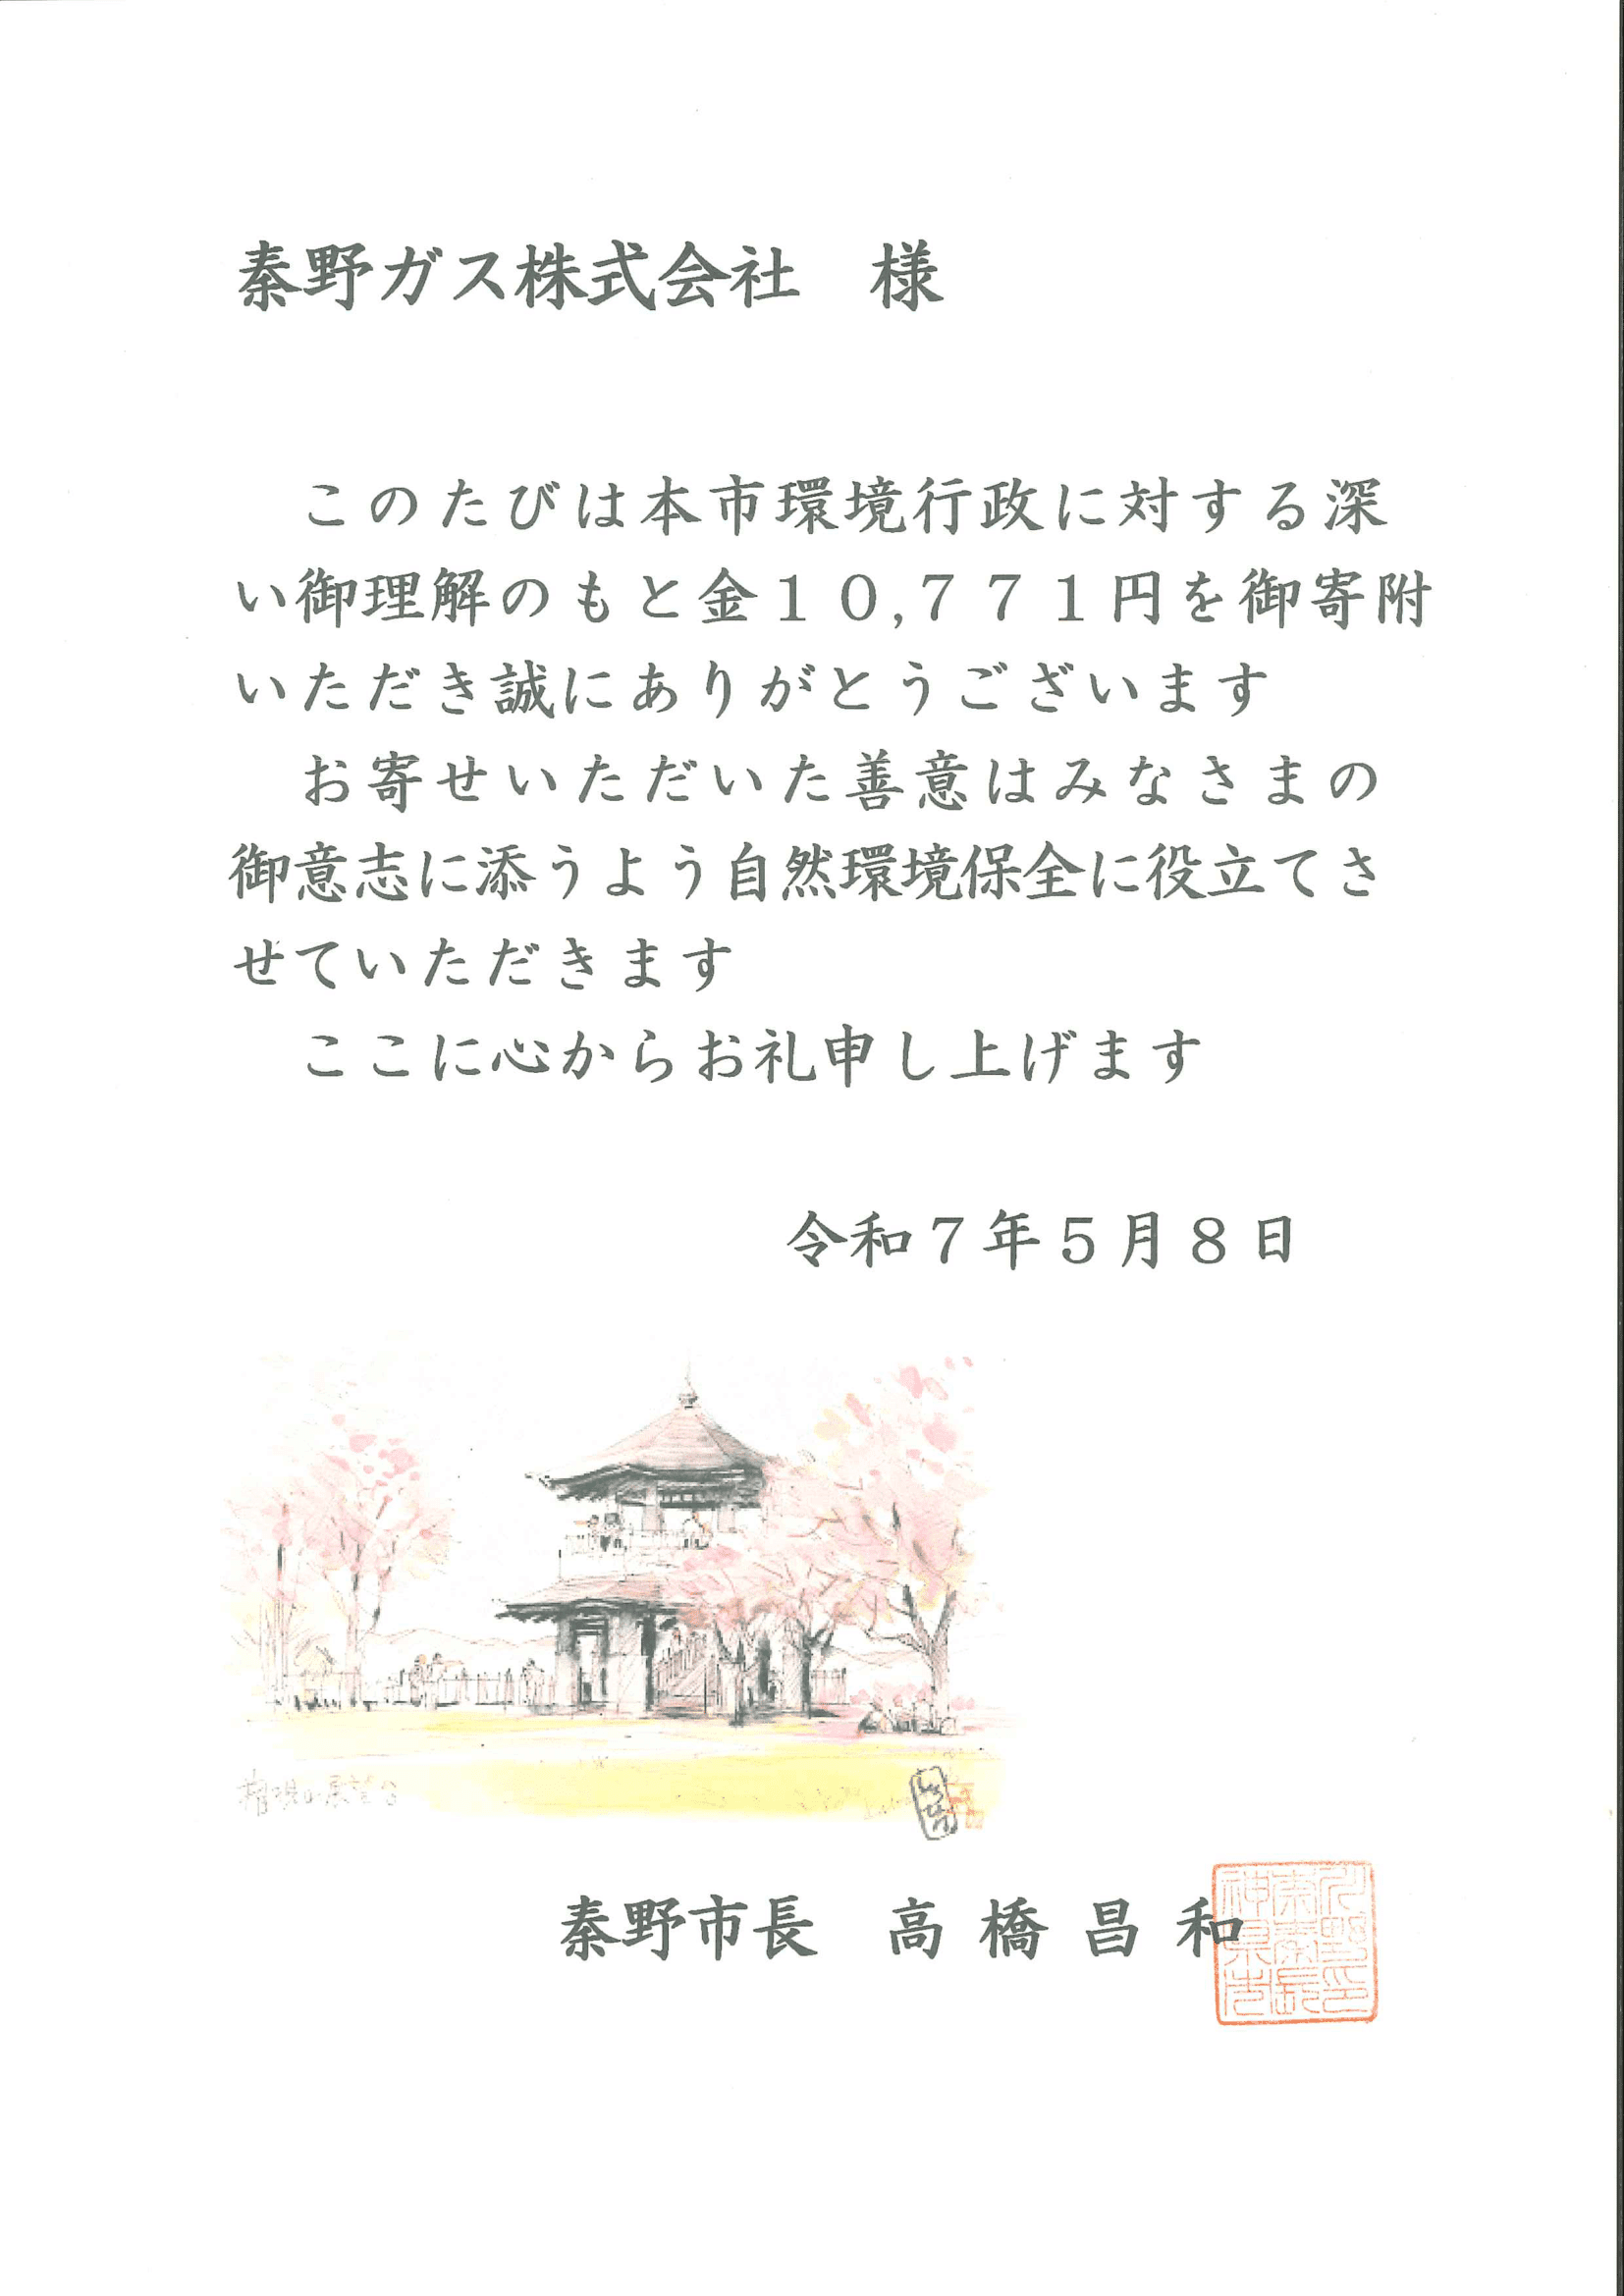 秦野ガス株式会社　様
このたびは本市環境行政に対する深
い御理解のもと金１０,７７１円を御寄附
いただき誠にありがとうございます
お寄せいただいた善意はみなさまの
御意志に添うよう自然環境保全に役立てさ
せていただきます
ここに心からお礼申し上げます
令和７年５月８日
秦野市長　高橋昌和